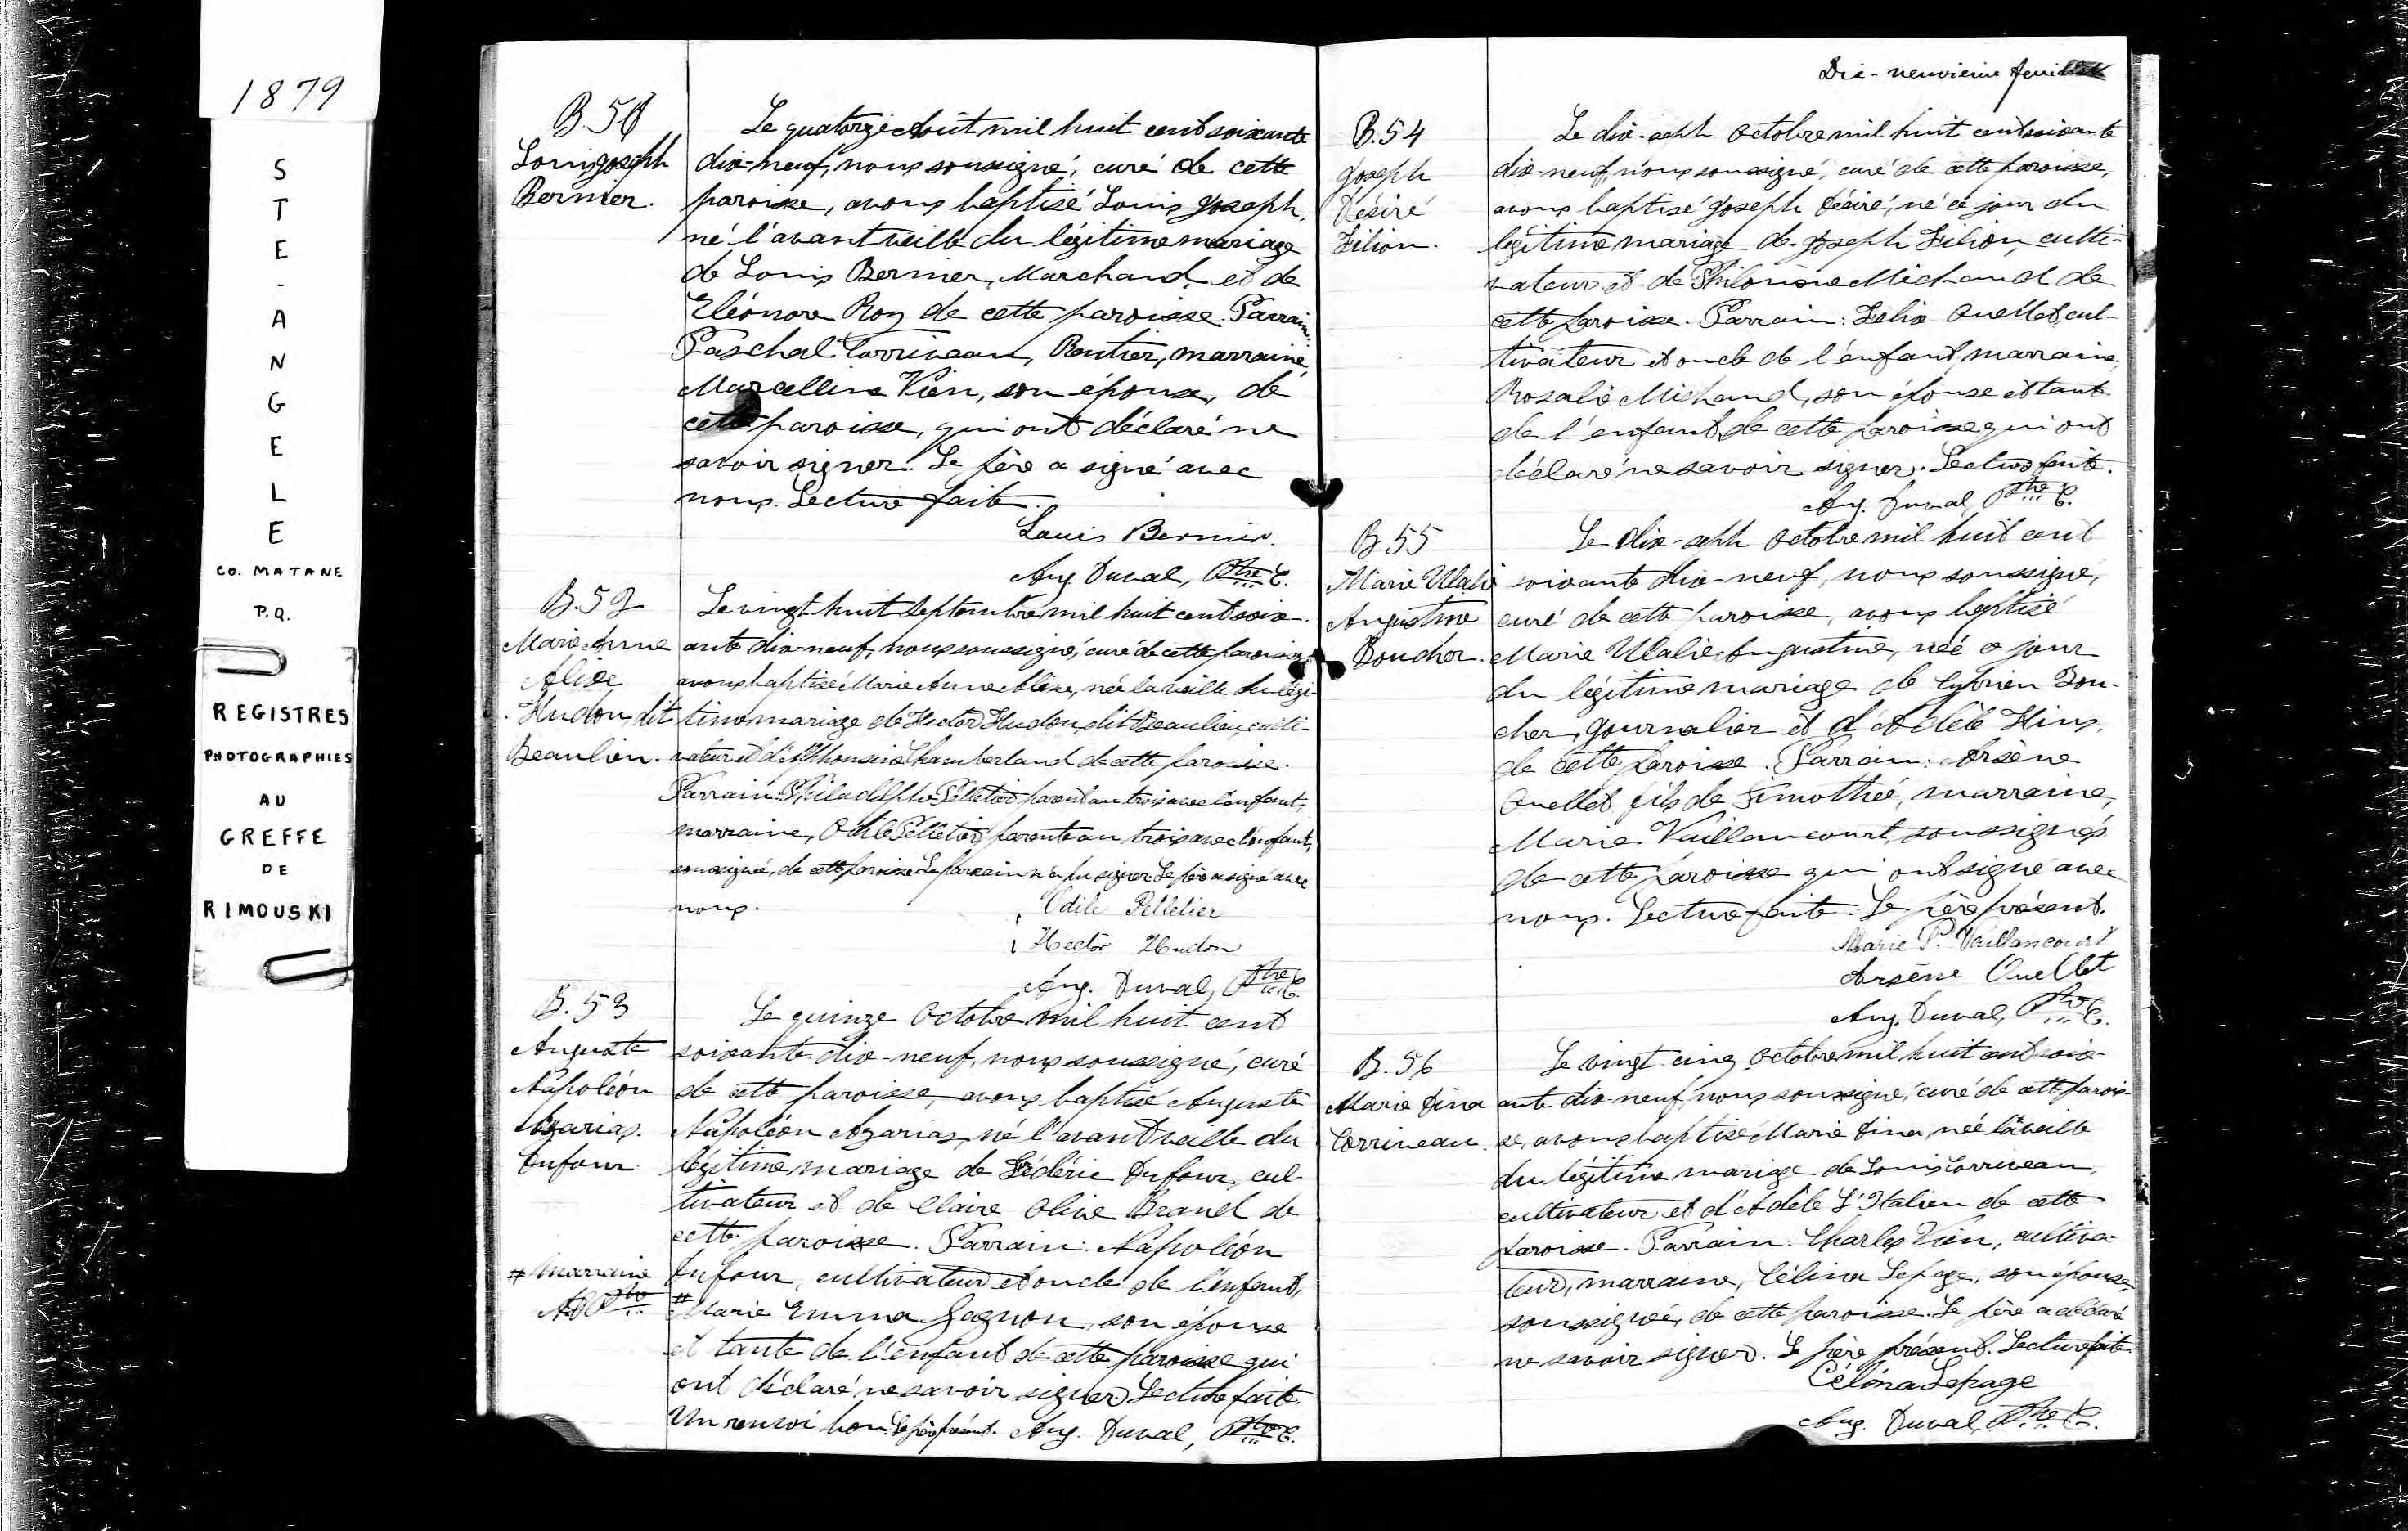 1879
S
T
E
-
A
N
G
E
L
E
CO. MATANE
P.Q.
REGISTRES
PHOTOGRAPHIES
AU
GREFFE
DE
RIMOUSKI
B.51
Louis Joseph
Bernier.
Le quatorze Août mil huit cent soixante
dix-neuf, nous soussigné, curé de cette
paroisse, avons baptisé Louis Joseph,
né l'avant veille du légitime mariage
de Louis Bernier, Marchand, et de
Eléonore Roy de cette paroisse. Parrain:
Paschal Corriveau, Rentier, marraine,
Marcelline Vien, son épouse, de
cette paroisse, qui ont déclaré ne
savoir signer. Le père a signé avec
nous. Lecture faite.
Louis Bernier.
Aug. Duval, Ptre C.
B.52
Marie Anne
Alise
Hudon, dit
Beaulieu.
Le vingt huit Septembre mil huit cent soix-
ante dix-neuf, nous soussigné, curé de cette paroisse
avons baptisé Marie Anne Alise, née la veille du légi-
time mariage de Hector Hudon, dit Beaulieu, culti-
vateur et d'Alphonsine Chamberland de cette paroisse.
Parrain: Philadelphe Pelletier parent au trois avec l'enfant,
marraine, Odile Pelletier, parente au trois avec l'enfant,
soussignée, de cette paroisse. Le parrain n'a pu signer. Le père a signé avec
nous.
Odile Pelletier
Hector Hudon
Aug. Duval, Ptre C.
B.53
Auguste
Napoléon
Azarias.
Dufour.
Le quinze Octobre mil huit cent
soixante dix-neuf, nous soussigné, curé
de cette paroisse, avons baptisé Auguste
Napoléon Azarias, né l'avant veille du
légitime mariage de Frédéric Dufour, cul-
tivateur et de Claire Olive Brand de
cette paroisse. Parrain: Napoléon
Dufour, cultivateur et oncle de l'enfant,
# Marie Emma Gagnon, son épouse
et tante de l'enfant de cette paroisse qui
ont déclaré ne savoir signer. Lecture faite.
Un renvoi bon. Le père présent. Aug. Duval, Ptre C.
# marraine
AD Ptre
Dix-neuvième feuillet
B.54
Joseph
Désiré
Filion.
Le dix-sept Octobre mil huit cent soixante
dix-neuf, nous soussigné, curé de cette paroisse,
avons baptisé Joseph Désiré, né ce jour du
légitime mariage de Joseph Filion, culti-
vateur et de Philomène Michaud de
cette paroisse. Parrain: Félix Ouellet, cul-
tivateur et oncle de l'enfant, marraine,
Rosalie Michaud, son épouse et tante
de l'enfant, de cette paroisse qui ont
déclaré ne savoir signer. Lecture faite.
Aug. Duval, Ptre C.
B 55
Marie Ulalie
Augustine
Boucher.
Le dix-sept Octobre mil huit cent
soixante dix-neuf, nous soussigné,
curé de cette paroisse, avons baptisé
Marie Ulalie Augustine, née ce jour
du légitime mariage de Cyprien Bou-
cher, Journalier et d'Adèle Hins,
de cette paroisse. Parrain: Arsène
Ouellet fils de Timothée, marraine,
Marie Vaillancourt, soussignés
de cette paroisse qui ont signé avec
nous. Lecture faite. Le père présent.
Marie P. Vaillancourt
Arsène Ouellet
Aug. Duval, Ptre C.
B.56
Marie Dina
Corriveau.
Le vingt cinq Octobre mil huit cent soix-
ante dix-neuf, nous soussigné, curé de cette parois-
se, avons baptisé Marie Dina, née la veille
du légitime mariage de Louis Corriveau,
cultivateur et d'Adèle L'Italien de cette
paroisse. Parrain: Charles Vien, cultiva-
teur, marraine, Célina Lepage, son épouse,
soussignée, de cette paroisse. Le père a déclaré
ne savoir signer. Le père présent. Lecture faite.
Célina Lepage
Aug. Duval, Ptre C.